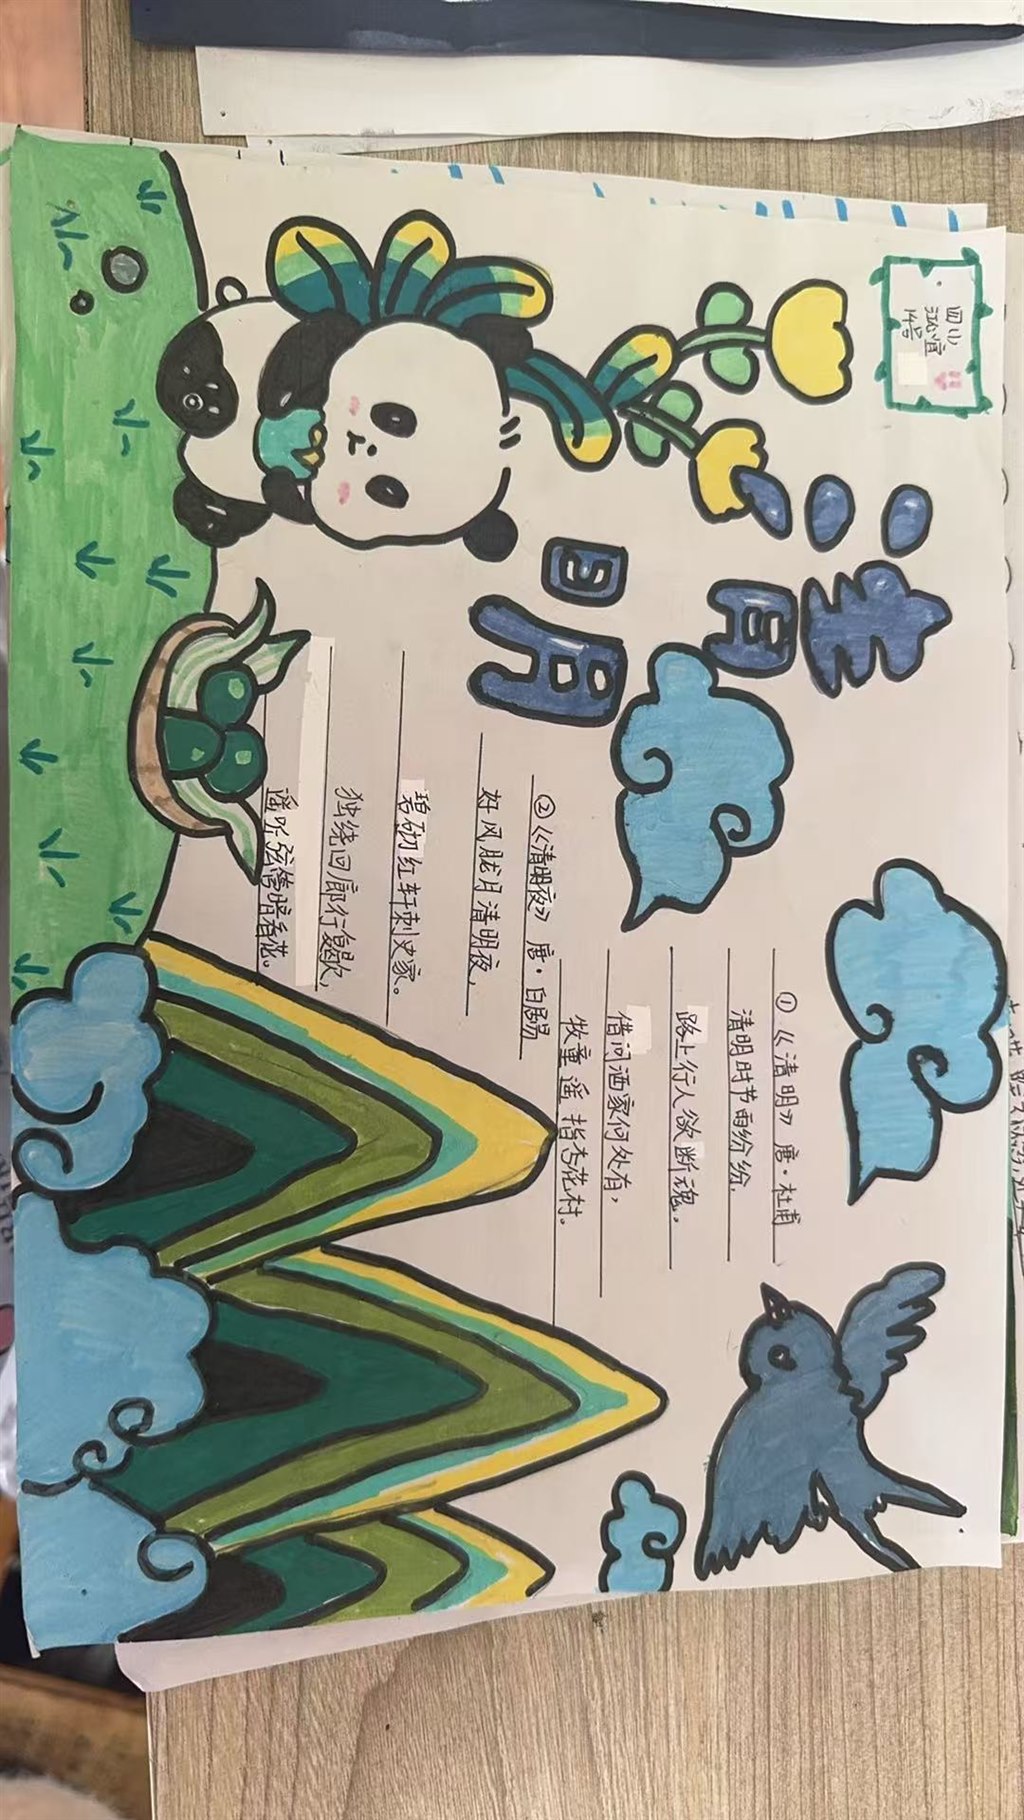 四(1)
江心宜
14号
清明
①《清明》 唐·杜甫
清明时节雨纷纷,
路上行人欲断魂。
借问酒家何处有,
牧童遥指杏花村。
②《清明夜》 唐·白居易
好风胧月清明夜,
碧砌红轩刺史家。
独绕回廊行复歇,
遥听弦管暗看花。